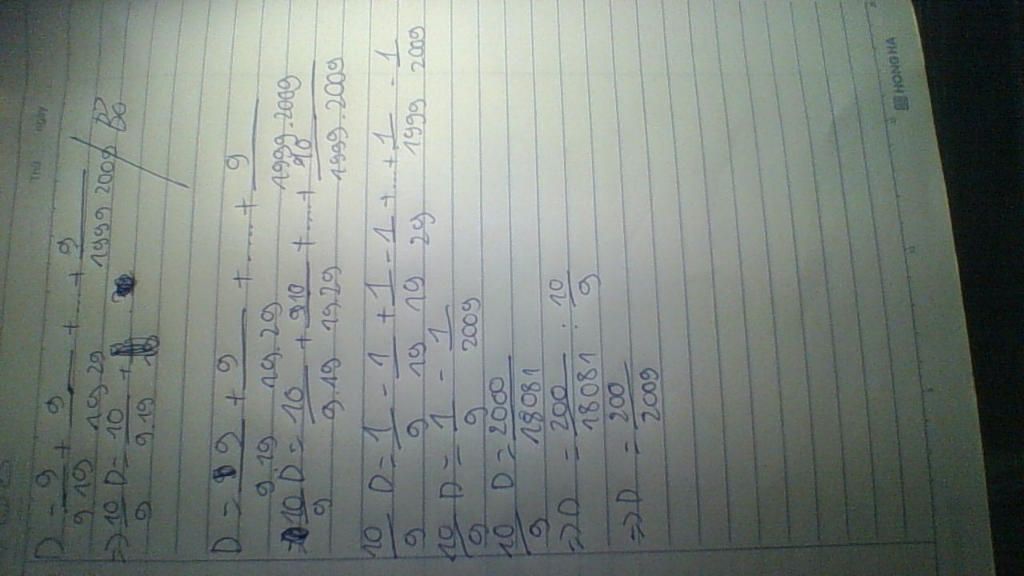 Thứ
ngày
D = 9/9.19 + 9/19.29 + ... + 9/1999.2009
=> 10/9 D = 10/9.19 +
Bỏ
D = 9/9.19 + 9/19.29 + ...... + 9/1999.2009
10/9 D = 10/9.19 + 10/19.29 + ..... + 10/1999.2009
10/9 D = 1/9 - 1/19 + 1/19 - 1/29 + ... + 1/1999 - 1/2009
10/9 D = 1/9 - 1/2009
10/9 D = 2000/18081
=> D = 200/18081 : 10/9
=> D = 200/2009
HONG HA